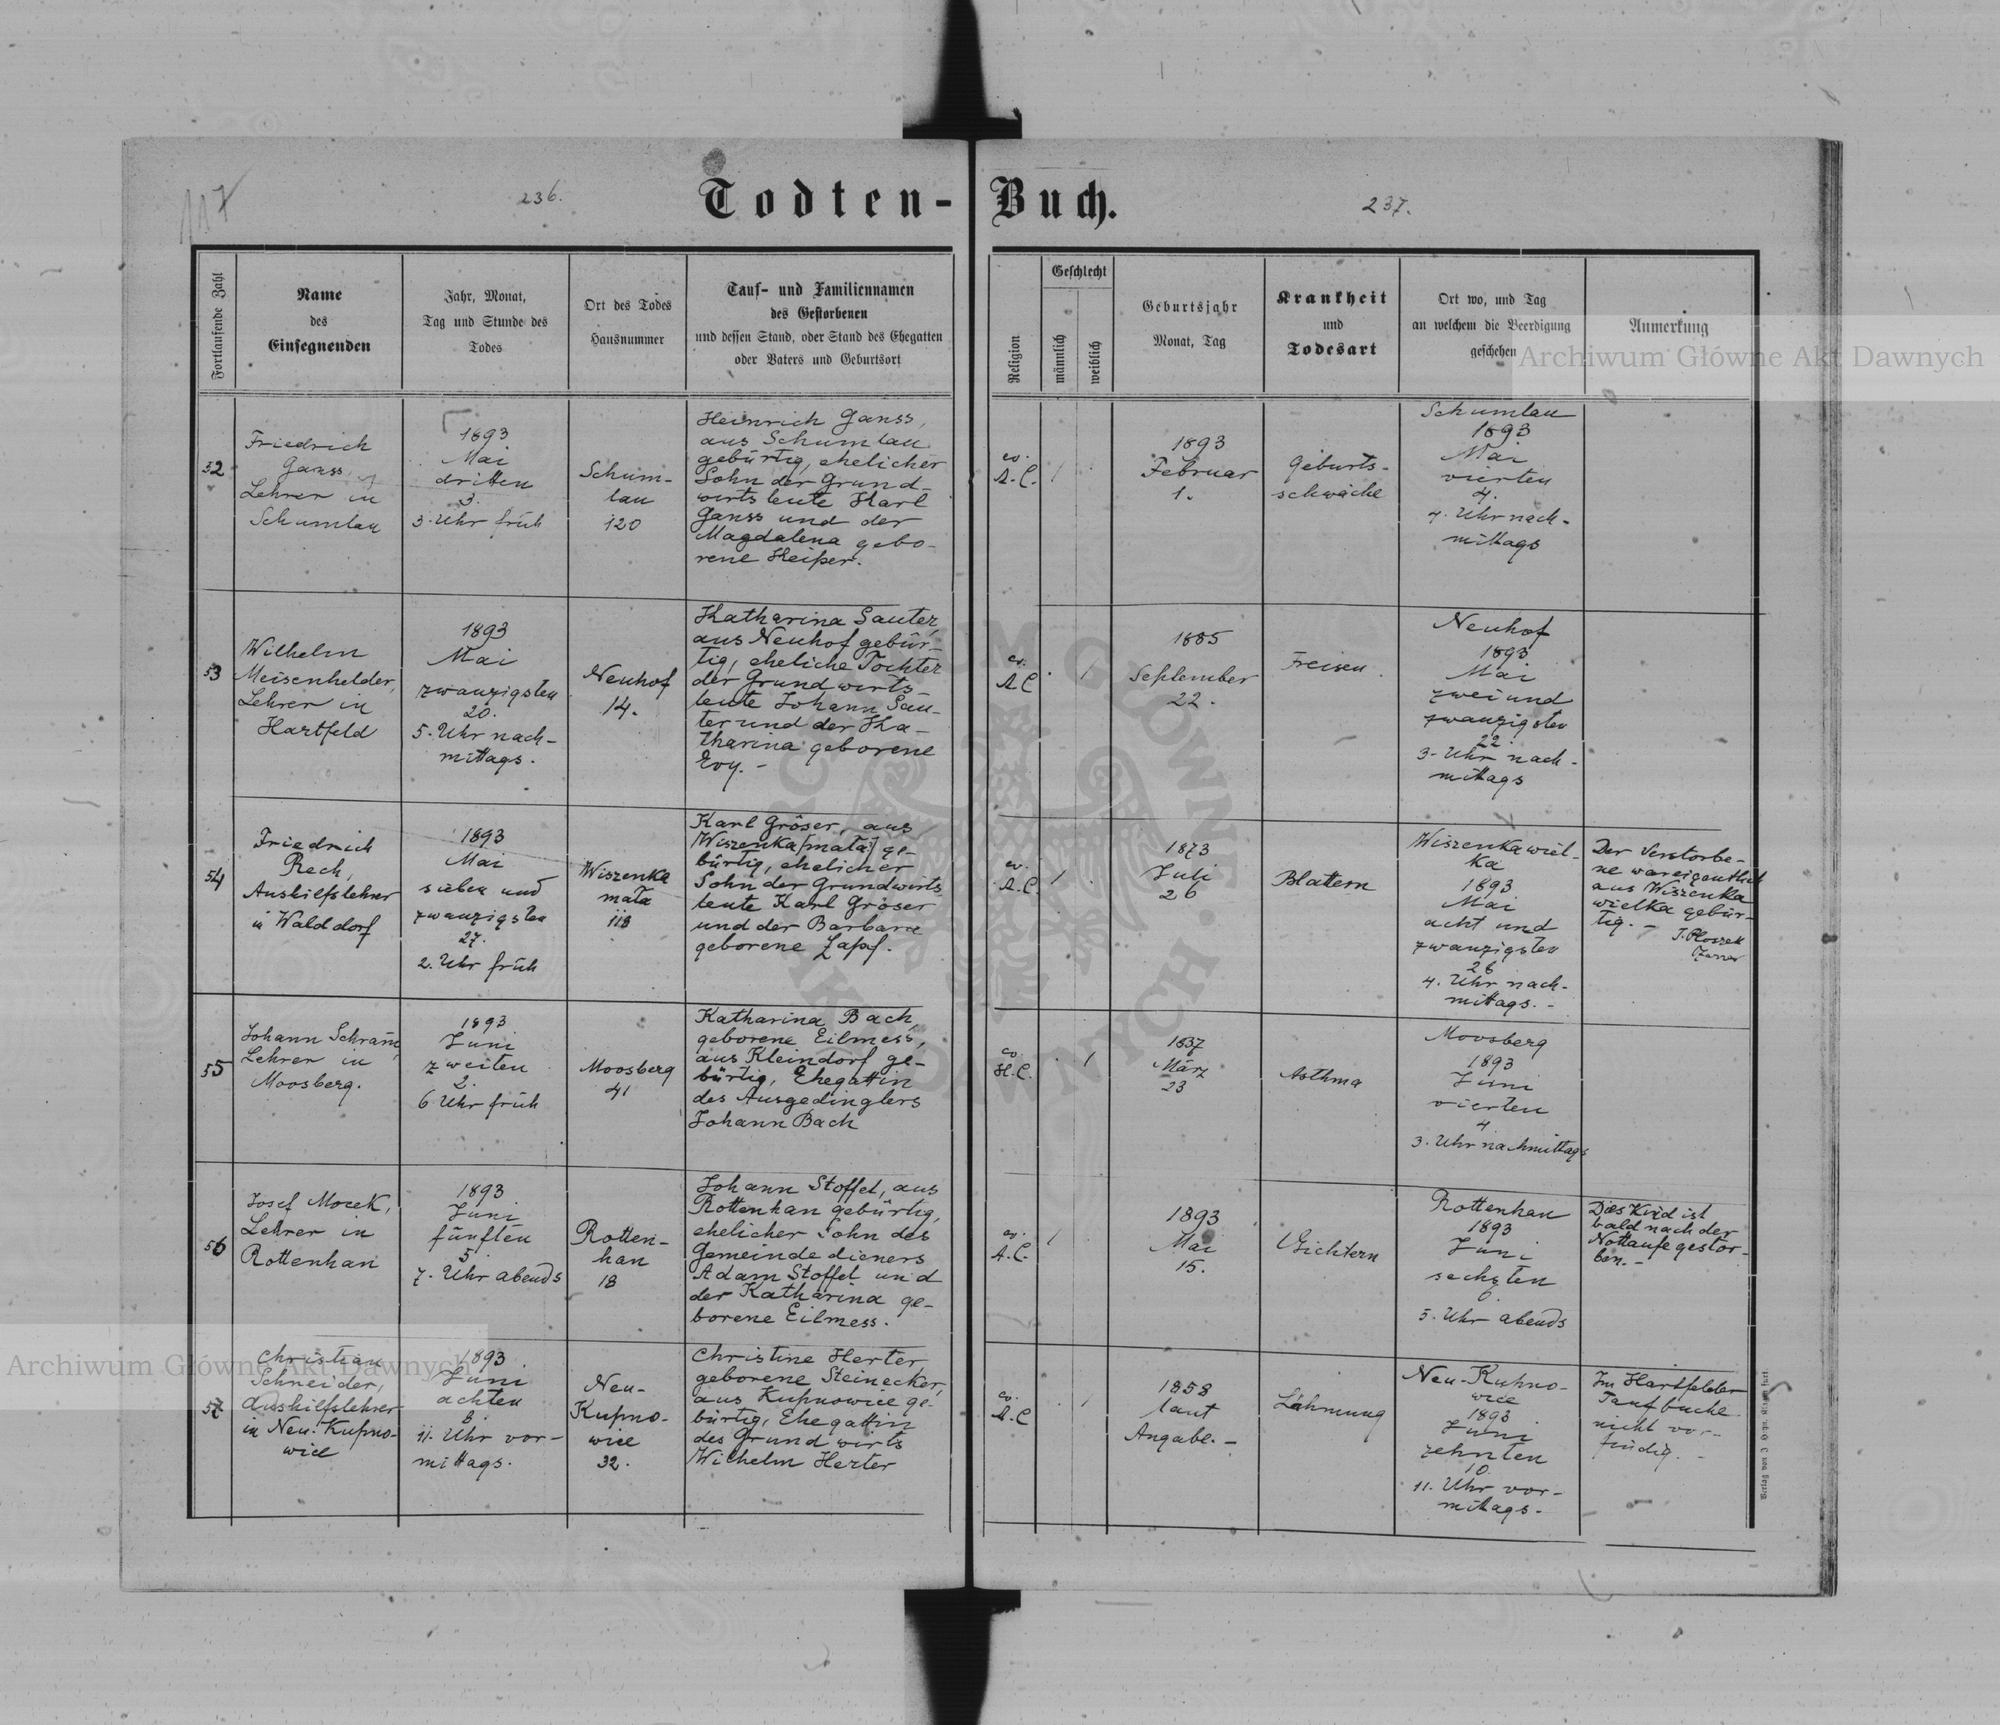 117
236.
Todten-Buch.
237.
Fortlaufende Zahl
Name
des
Einsegnenden
Jahr, Monat,
Tag und Stunde des
Todes
Ort des Todes
Hausnummer
Tauf- und Familiennamen
des Gestorbenen
und dessen Stand, oder Stand des Ehegatten
oder Vaters und Geburtsort
Religion
Geschlecht
männlich
weiblich
Geburtsjahr
Monat, Tag
Krankheit
und
Todesart
Ort wo, und Tag
an welchem die Beerdigung
geschehen
Anmerkung
Archiwum Główne Akt Dawnych
52
Friedrich
Ganss,
Lehrer in
Schumlau
1893
Mai
dritten
3.
3. Uhr früh
Schum-
lau
120
Heinrich Ganss,
aus Schumlau
gebürtig, ehelicher
Sohn der Grund-
wirtsleute Karl
Ganss und der
Magdalena gebo-
rene Heißer.
ev.
A. C.
/
1893
Februar
1.
Geburts-
schwäche
Schumlau
1893
Mai
vierten
4.
4. Uhr nach-
mittags
53
Wilhelm
Meisenhelder,
Lehrer in
Hartfeld
1893
Mai
zwanzigsten
20.
5. Uhr nach-
mittags.
Neuhof
14.
Katharina Sauter,
aus Neuhof gebür-
tig, eheliche Tochter
der Grundwirts-
leute Johann Sau-
ter und der Ka-
tharina geborene
Evy. -
ev.
A C
/
1885
September
22.
Freisen
Neuhof
1893
Mai
zwei und
zwanzigsten
22.
3- Uhr nach-
mittags
54
Friedrich
Rech,
Aushilfslehrer
in Walddorf
1893
Mai
sieben und
zwanzigsten
27.
2. Uhr früh
Wiszenka
mała
118
Karl Gröser, aus
Wiszenka [mała] ge-
bürtig, ehelicher
Sohn der Grundwirts
leute Karl Gröser
und der Barbara
geborene Zapf.
ev.
A. C.
/
1873
Juli
26
Blattern
Wiszenka wiel-
ka
1893
Mai
acht und
zwanzigsten
28
4. Uhr nach-
mittags. -
Der Verstorbe-
ne war eigentlich
aus Wiszenka
wielka gebür-
tig. -
55
Johann Schram̄,
Lehrer in
Moosberg.
1893
Juni
zweiten
2.
6 Uhr früh
Moosberg
41
Katharina Bach,
geborene Eilmess,
aus Kleindorf ge-
bürtig, Ehegattin
des Ausgedinglers
Johann Bach
ev.
H. C.
/
1837
März
23
Asthma
Moosberg
1893
Juni
vierten
4
3. Uhr nachmittags
56
Josef Mocek,
Lehrer in
Rottenhan
1893
Juni
fünften
5.
7. Uhr abends
Rotten-
han
18
Johann Stoffel, aus
Rottenhan gebürtig,
ehelicher Sohn des
Gemeindedieners
Adam Stoffel und
der Katharina ge-
borene Eilmess.
ev.
A. C.
/
1893
Mai
15.
Gichtern
Rottenhan
1893
Juni
sechsten
6.
5. Uhr abends
Dies Kind ist
bald nach der
Nottaufe gestor-
ben. -
Archiwum Główne Akt Dawnych
57
Christian
Schneider,
Aushilfslehrer
in Neu-Kupno-
wice
1893
Juni
achten
8
11. Uhr vor-
mittags.
Neu-
Kupno-
wice
32.
Christine Herter
geborene Steinecker,
aus Kupnowice ge-
bürtig, Ehegattin
des Grundwirts
Wilhelm Herter
ev.
A. C
/
1858
laut
Angabe. -
Lähmung
Neu-Kupno-
wice
1893
Juni
zehnten
10.
11. Uhr vor-
mittags.
Im Hartfelder
Taufbuche
nicht vor-
findig. -
ARCHIWUM GŁÓWNE AKT DAWNYCH